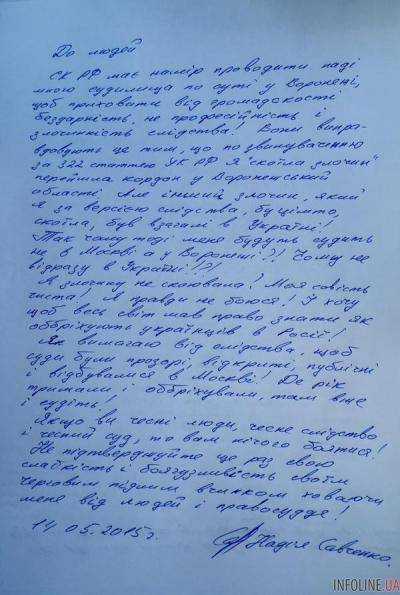 До людей
СК РФ має намір проводити наді
мною судилища по суті у Воронежі,
щоб приховати від громадськості
бездарність, не професійність і
злочинність слідства! Вони випра-
вдовують це тим, що по звинуваченню
за 322 статтею УК РФ я "скоїла злочин"
перетнула кордон у Воронежській
області. Але інший злочин, який
я за версією слідства, буцімто,
скоїла, був взагалі в Україні!
Так чому тоді мене будуть судить
не в Москві а у Воронежі?! Чому не
відразу в Україні!?!
Я злочину не скоювала! Моя совість
чиста! Я правди не боюся! І хочу
щоб весь світ мав право знати як
оббріхують українців в Росії!
Я вимагаю від слідства, щоб
суди були прозорі, відкриті, публічні
і відбувалися в Москві! Де рік
тримали і оббріхували, там вже
і судіть!
Якщо ви чесні люди, чесне слідство
і чесний суд, то вам нічого боятися!
Не підтверджуйте ще раз свою
слабкість і боягузливість своїм
черговим підлим вчинком ховаючи
мене від людей і правосуддя!
14.05.2015г.
Надія Савченко.
INFOLINE.UA